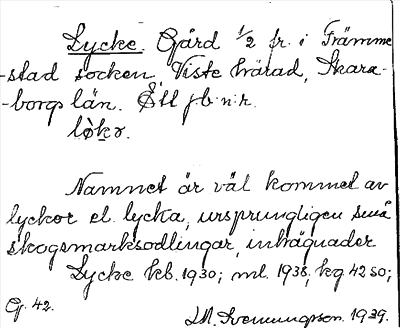 Lycke. Gård 1/2 fr. i Främme-
-stad socken, Viste härad, Skara-
-borgs län. Ett j.b.n:r.
Namnet är väl kommet av
lyckor el. lycka, ursprungligen små
skogsmarksodlingar, inhägnader
Lycke kb. 1930; ml. 1938, kg 4250;
Gj. 42.
Svenungson. 1939.